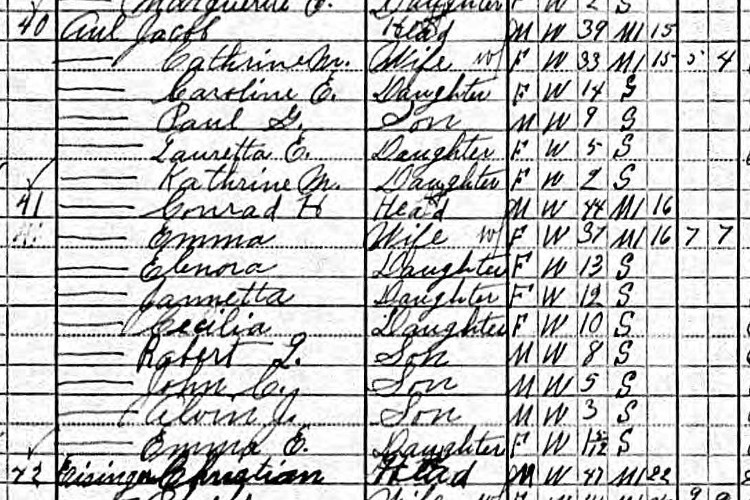 Marguerite E. Daughter F W 2 S
40 Aul Jacob Head M W 39 M1 15
— Cathrine M. Wife F W 33 M1 15 5 4
— Caroline E. Daughter F W 14 S
— Paul G. Son M W 9 S
— Lauretta E. Daughter F W 5 S
— Kathrine M. Daughter F W 2 S
41 — Conrad H Head M W 44 M1 16
— Emma Wife F W 37 M1 16 7 7
— Elenora Daughter F W 13 S
— Jannetta Daughter F W 12 S
— Cecilia Daughter F W 10 S
— Robert J. Son M W 8 S
— John C. Son M W 5 S
— Alvin J. Son M W 3 S
— Emma E. Daughter F W S
42 Eisinger Christian Head M W 47 M1 22
Wife 9 9